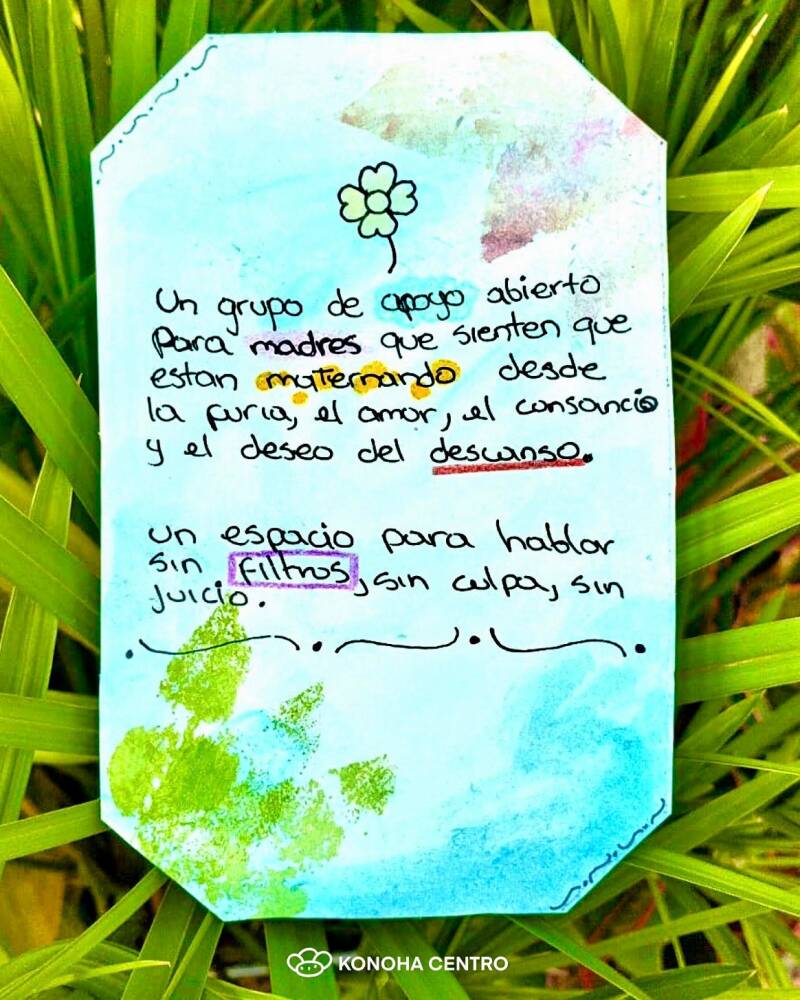 Un grupo de apoyo abierto
Para madres que sienten que
estan maternando desde
la furia, el amor, el cansancio
y el deseo del descanso.
un espacio para hablar
sin filtros, sin culpa, sin
juicio.
KONOHA CENTRO